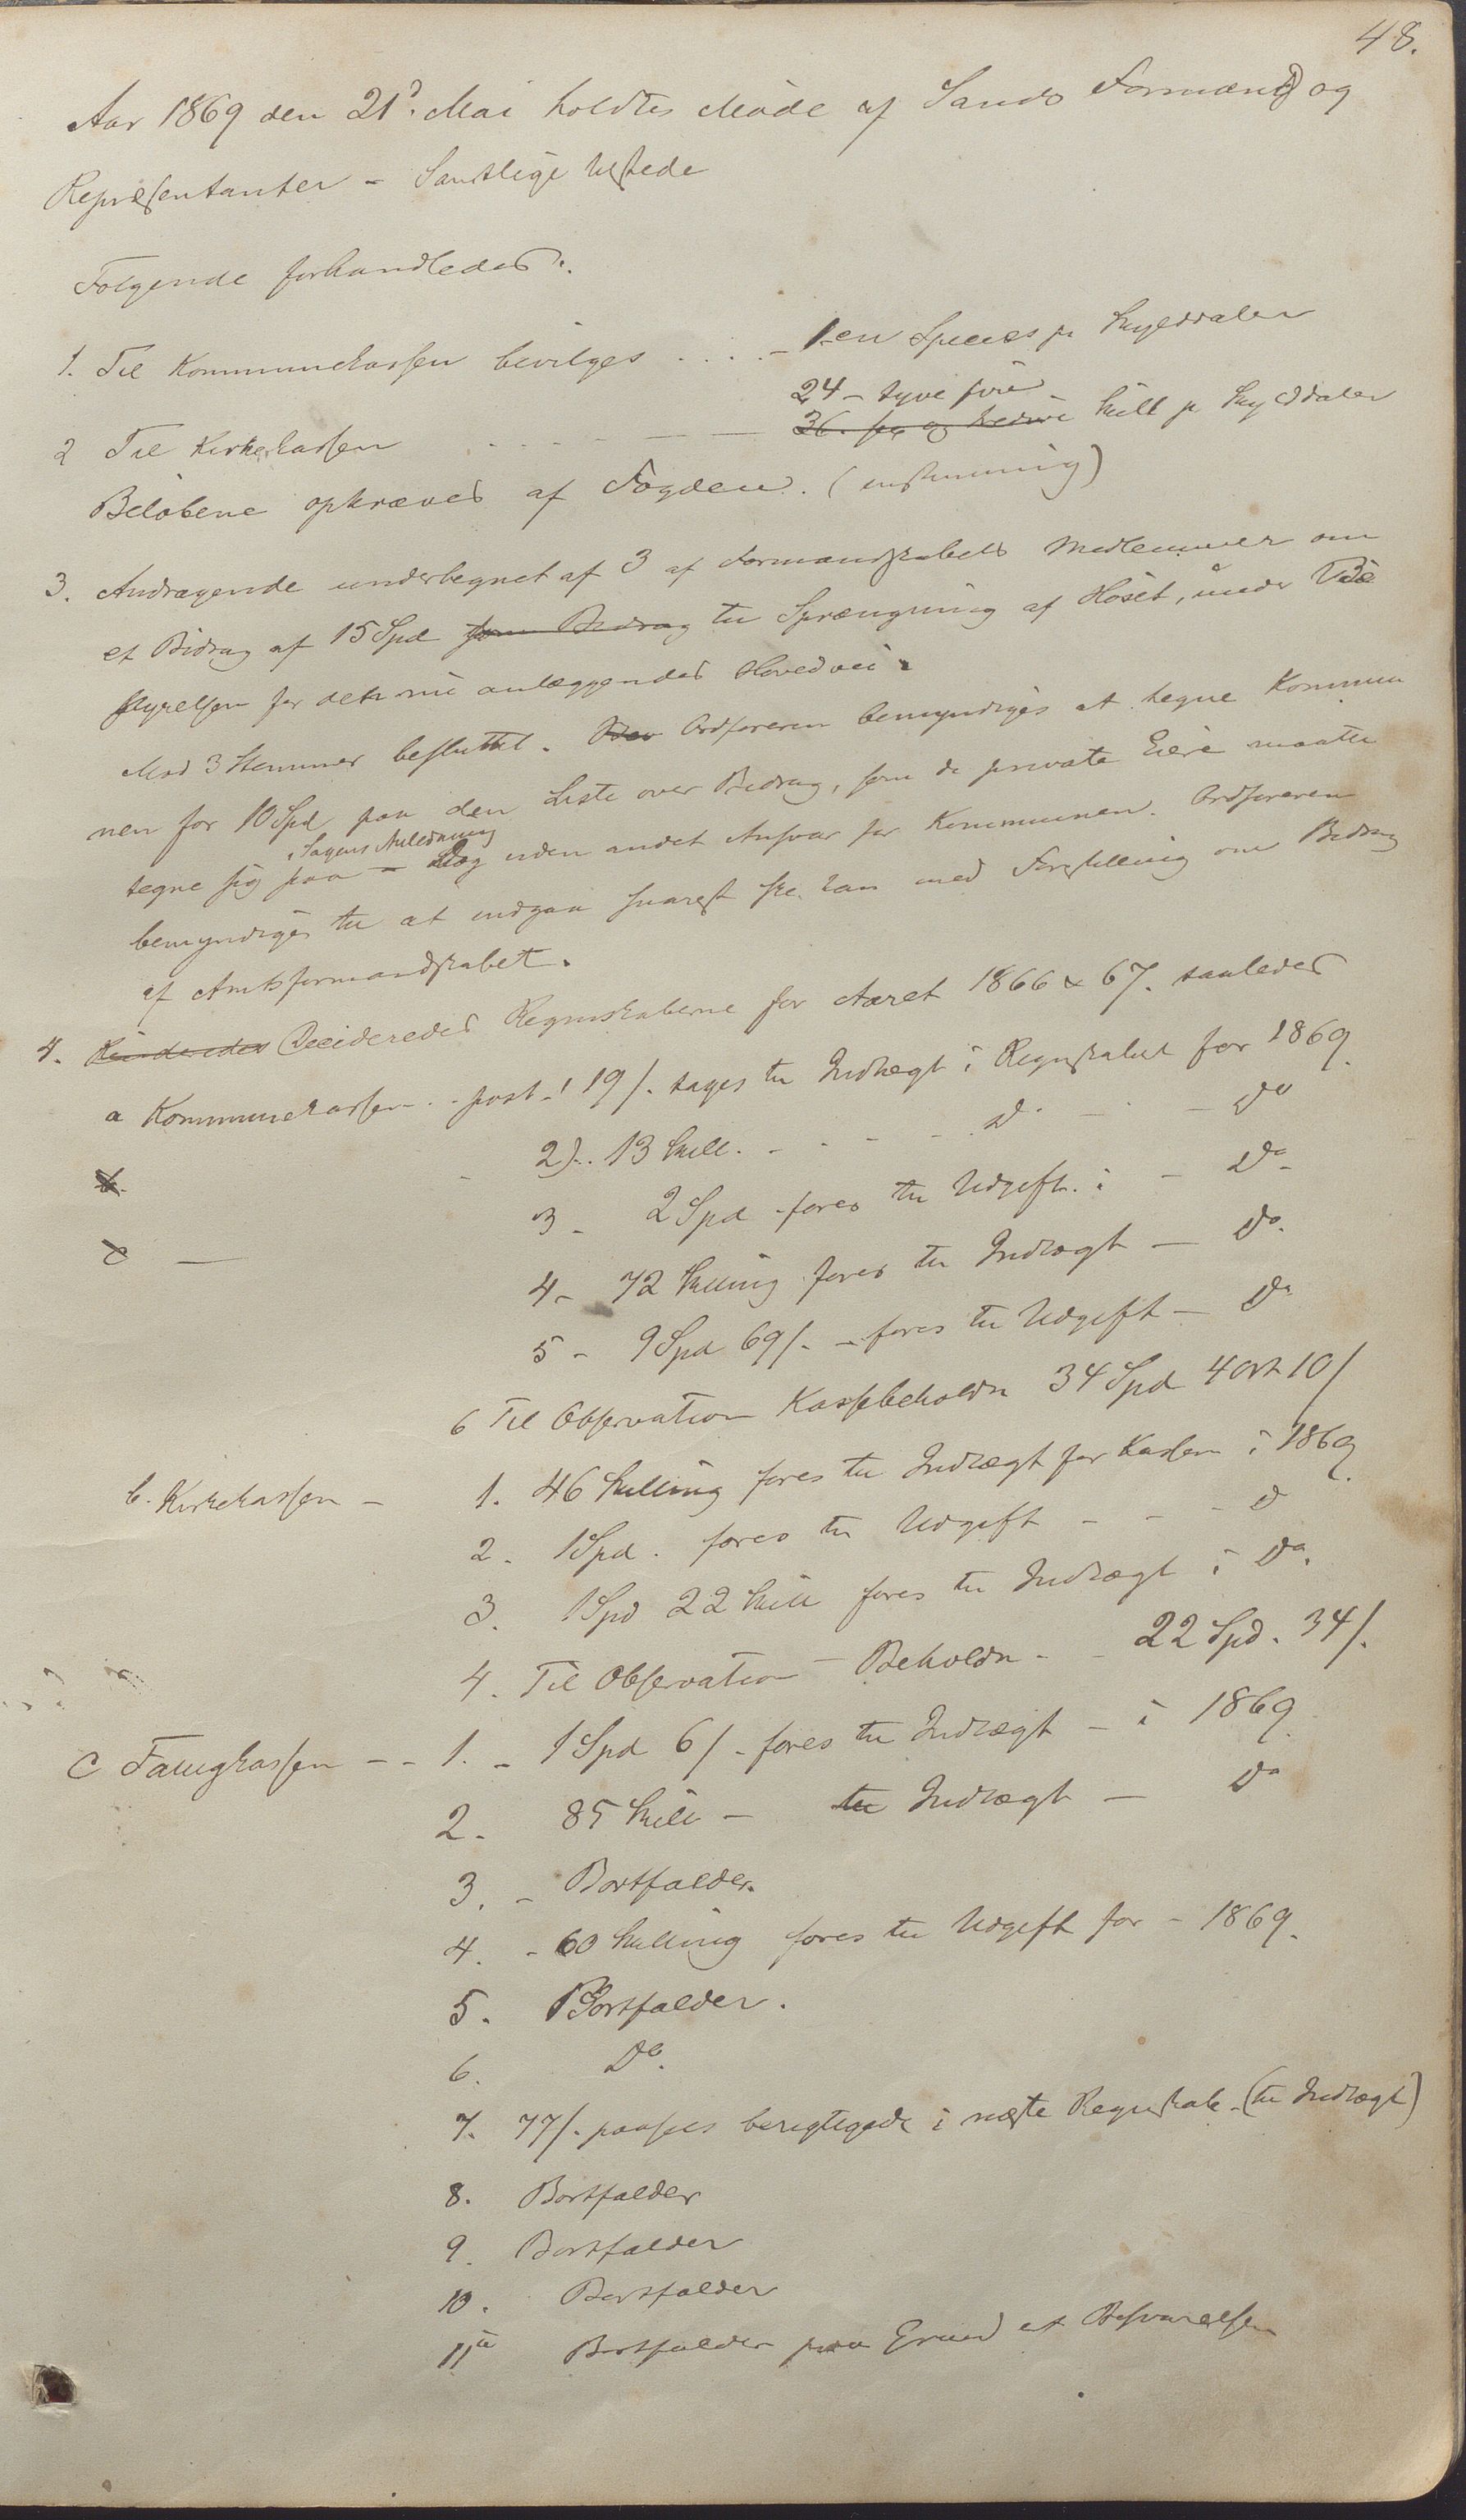 48.
Aar 1869 den 21de Mai holdtes Møde af Sands Formænd og
Repræsentanter - Samtlige tilstede
Følgende forhandledes:
1. Til Kommunekassen bevilges .... - 1-en Species pr Skylddaler
24 - tyve fire
2 Til Kirkekassen - - - - - 36. sex og tredive Skill pr Skylddaler
Beløbene opkræves af Fogden. (enstemmig)
3. Andragende undertegnet af 3 af Formandskabets Medlemmer om
et Bidrag af 15 Spd som Bidrag til Sprængning af Høset, under Vei
styrelsen for det nu anlæggendes Hovedvei.
Mod 3 Stemmer besluttet. Den Ordføreren bemyndiges at tegne Kommu
nen for 10 Spd paa den Liste over Bidrag, som de private Eiere maatte
i Sagens Anledning
tegne sig paa - Dog uden andet Ansvar for Kommunen. Ordføreren
bemyndiges til at indgaa snarest ske kan med Forestilling om Bidrag
af Amtsformandskabet.
4. Decideredes Regnskaberne for Aaret 1866 & 67. saaledes
a Kommunekassen - post - 1 19/. tages til Indtægt i Regnskabet for 1869.
b. - 2).. 13 Skill. - - - - Do - - - Do
c - 3 - 2 Spd føres til Udgift i - Do
4 - 72 Skilling føres til Indtægt - Do.
5 - 9 Spd 69/. - føres til Udgift - Do
6 Til Observation Kassebeholdn 34 Spd 4 Ort 10/
b. Kirkekassen - 1. 46 Skilling føres til Indtægt for Kassen i 1869
2. 1 Spd. føres til Udgift - - - D
3. 1 Spd 22 Skill føres til Indtægt i Do.
4. Til Observation - Beholdn - - 22 Spd. 34/.
C Fattigkassen - - 1. - 1 Spd 6/ - føres til Indtægt - i 1869
2. 85 Skill - til Indtægt - Do
3. - Bortfalder.
4. - 60 Skilling føres til Udgift for - 1869.
5. Bortfalder.
6. Do.
7. 77/. paasees berigtigede i næste Regnskab - (til Indtægt)
8. Bortfalder
9. Bortfalder
10. Bortfalder
11te Bortfalder paa Grund af Besvarelsen